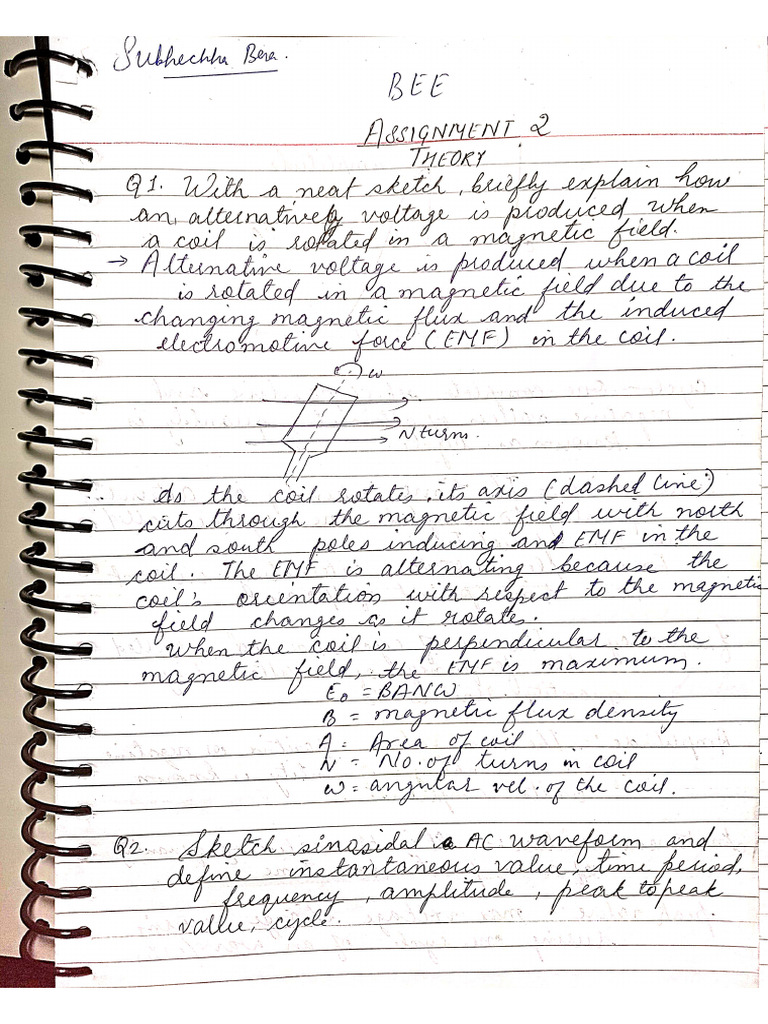 Subhechha Bera.
BEE
ASSIGNMENT 2
THEORY
Q1. With a neat sketch, briefly explain how
an, alternatively voltage is produced when
a coil is rotated in a magnetic field.
→ Alternative voltage is produced when a coil
is rotated in a magnetic field due to the
changing magnetic flux and the induced
electromotive force (EMF) in the coil.
ω
N turns.
As the coil rotates, its axis (dashed line)
cuts through the magnetic field with north
and south poles inducing and EMF in the
coil. The EMF is alternating because the
coil's orientation with respect to the magnetic
field changes as it rotates.
When the coil is perpendicular to the
magnetic field, the EMF is maximum.
E₀ = BANω
B = magnetic flux density
A = Area of coil
N = No. of turns in coil
ω = angular vel. of the coil.
Q2. Sketch sinosidal a AC waveform and
define instantaneous value, time period,
frequency, amplitude, peak to peak
value, cycle.